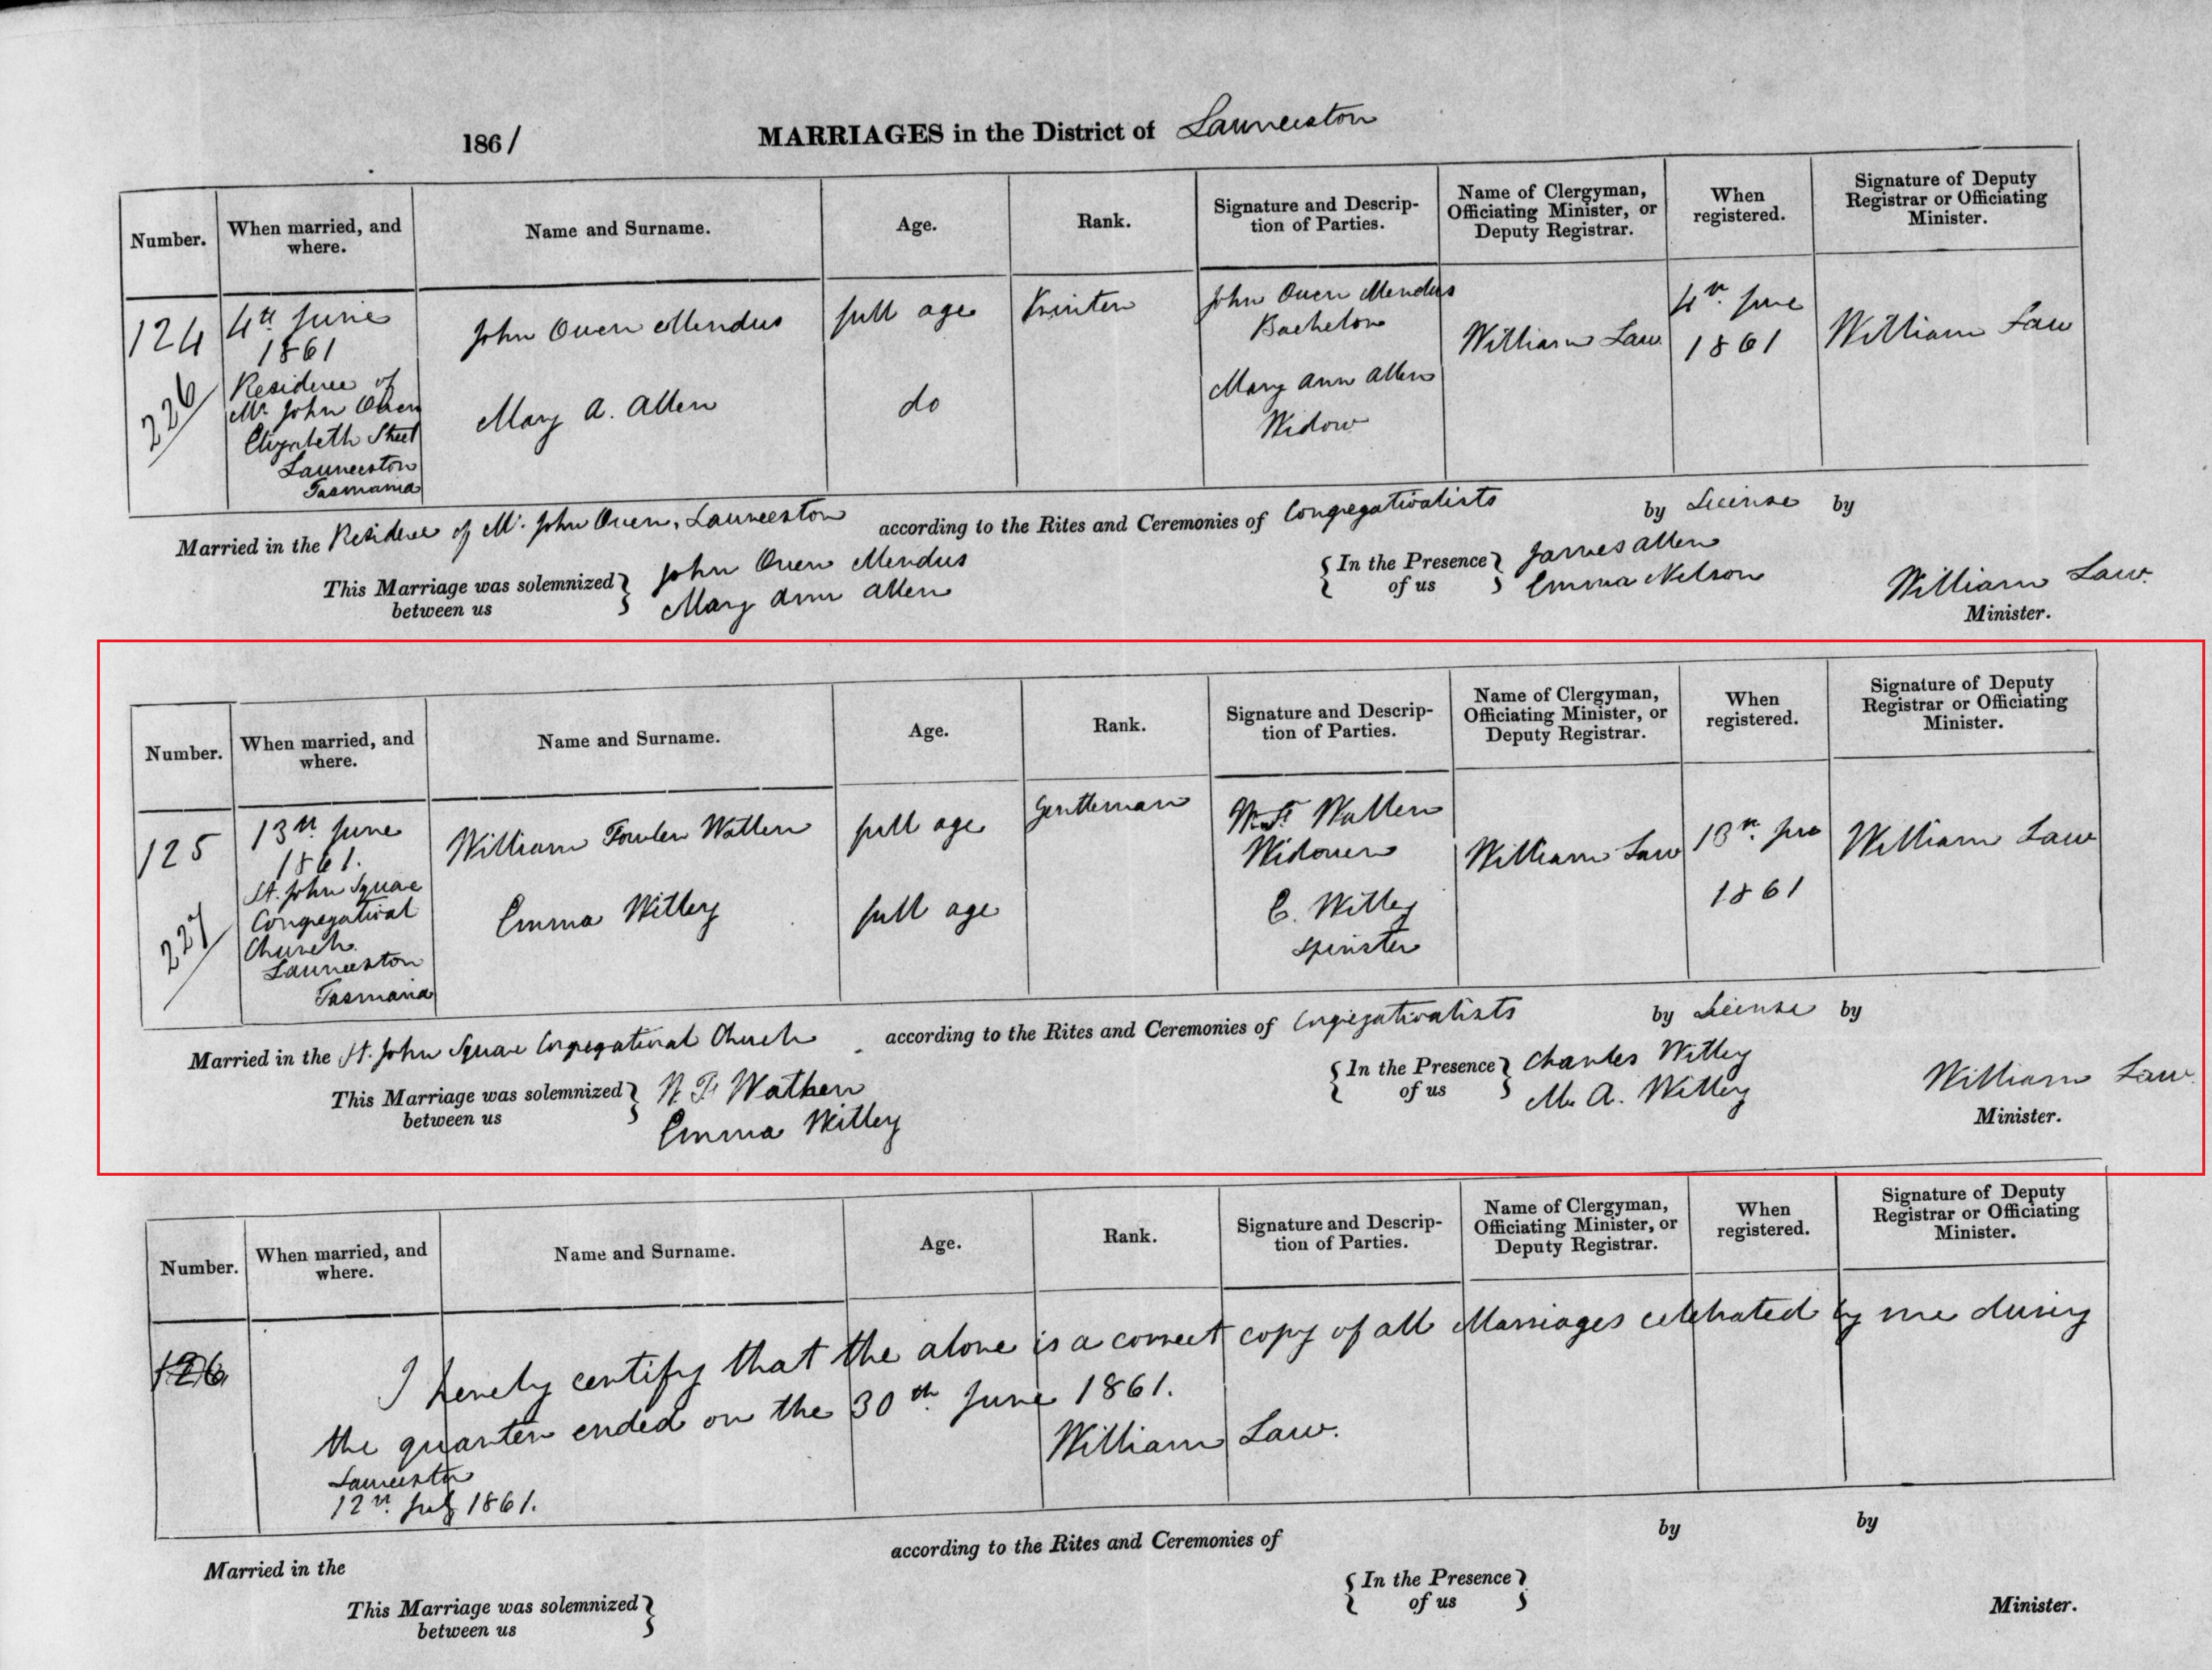 1861
MARRIAGES in the District of Launceston
Number.
When married, and where.
Name and Surname.
Age.
Rank.
Signature and Description of Parties.
Name of Clergyman, Officiating Minister, or Deputy Registrar.
When registered.
Signature of Deputy Registrar or Officiating Minister.
124
226
4th June
1861
Residence of
Mr. John Owen
Elizabeth Street
Launceston
Tasmania
John Owen Mendus
Mary A. Allen
full age
do
Printer
John Owen Mendus
Bachelor
Mary Ann Allen
Widow
William Law
4th June
1861
William Law
Married in the Residence of Mr. John Owen, Launceston according to the Rites and Ceremonies of Congregationalists by License by
This Marriage was solemnized between us
John Owen Mendus
Mary Ann Allen
In the Presence of us
James Allen
Emma Nelson
William Law.
Minister.
Number.
When married, and where.
Name and Surname.
Age.
Rank.
Signature and Description of Parties.
Name of Clergyman, Officiating Minister, or Deputy Registrar.
When registered.
Signature of Deputy Registrar or Officiating Minister.
125
227
13th June
1861.
St. John Square
Congregational
Church
Launceston
Tasmania
William Fowler Wathen
Emma Witley
full age
full age
Gentleman
W. F. Wathen
Widower
E. Witley
Spinster
William Law
13th June
1861
William Law
Married in the St. John Square Congregational Church according to the Rites and Ceremonies of Congregationalists by License by
This Marriage was solemnized between us
W. F. Wathen
Emma Witley
In the Presence of us
Charles Witley
M. A. Witley
William Law
Minister.
Number.
When married, and where.
Name and Surname.
Age.
Rank.
Signature and Description of Parties.
Name of Clergyman, Officiating Minister, or Deputy Registrar.
When registered.
Signature of Deputy Registrar or Officiating Minister.
126
I hereby certify that the above is a correct copy of all Marriages celebrated by me during
the quarter ended on the 30th June 1861.
William Law.
Launceston
12th July 1861.
Married in the
according to the Rites and Ceremonies of
by
by
This Marriage was solemnized between us
In the Presence of us
Minister.